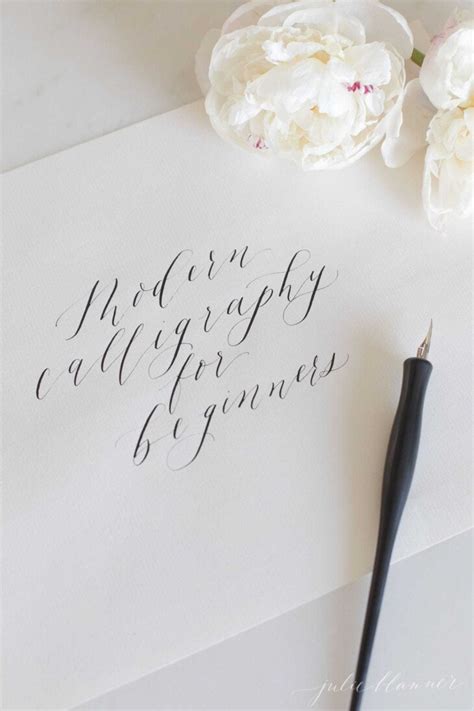 Modern
calligraphy
for
beginners
julie blanner